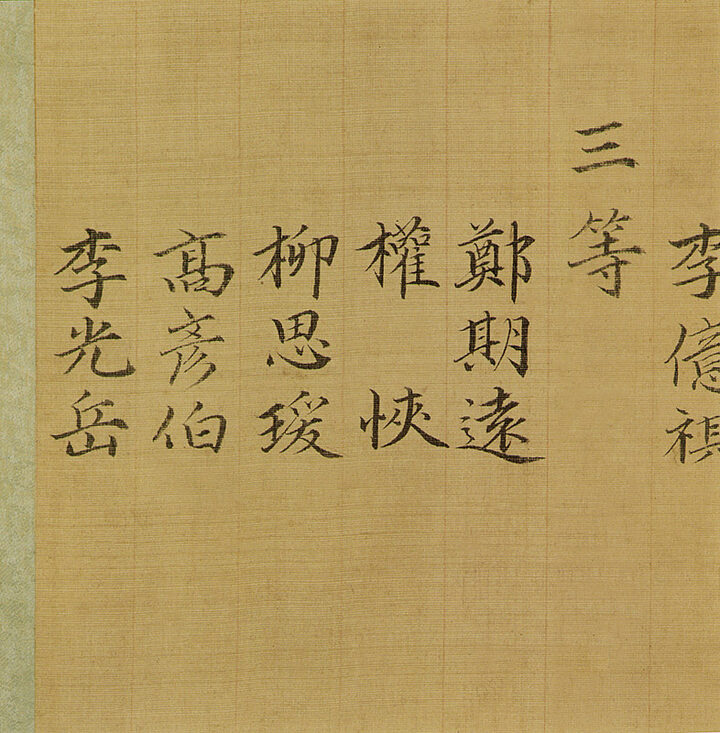 李億祺
三等
鄭期遠
權悏
柳思瑗
高彥伯
李光岳